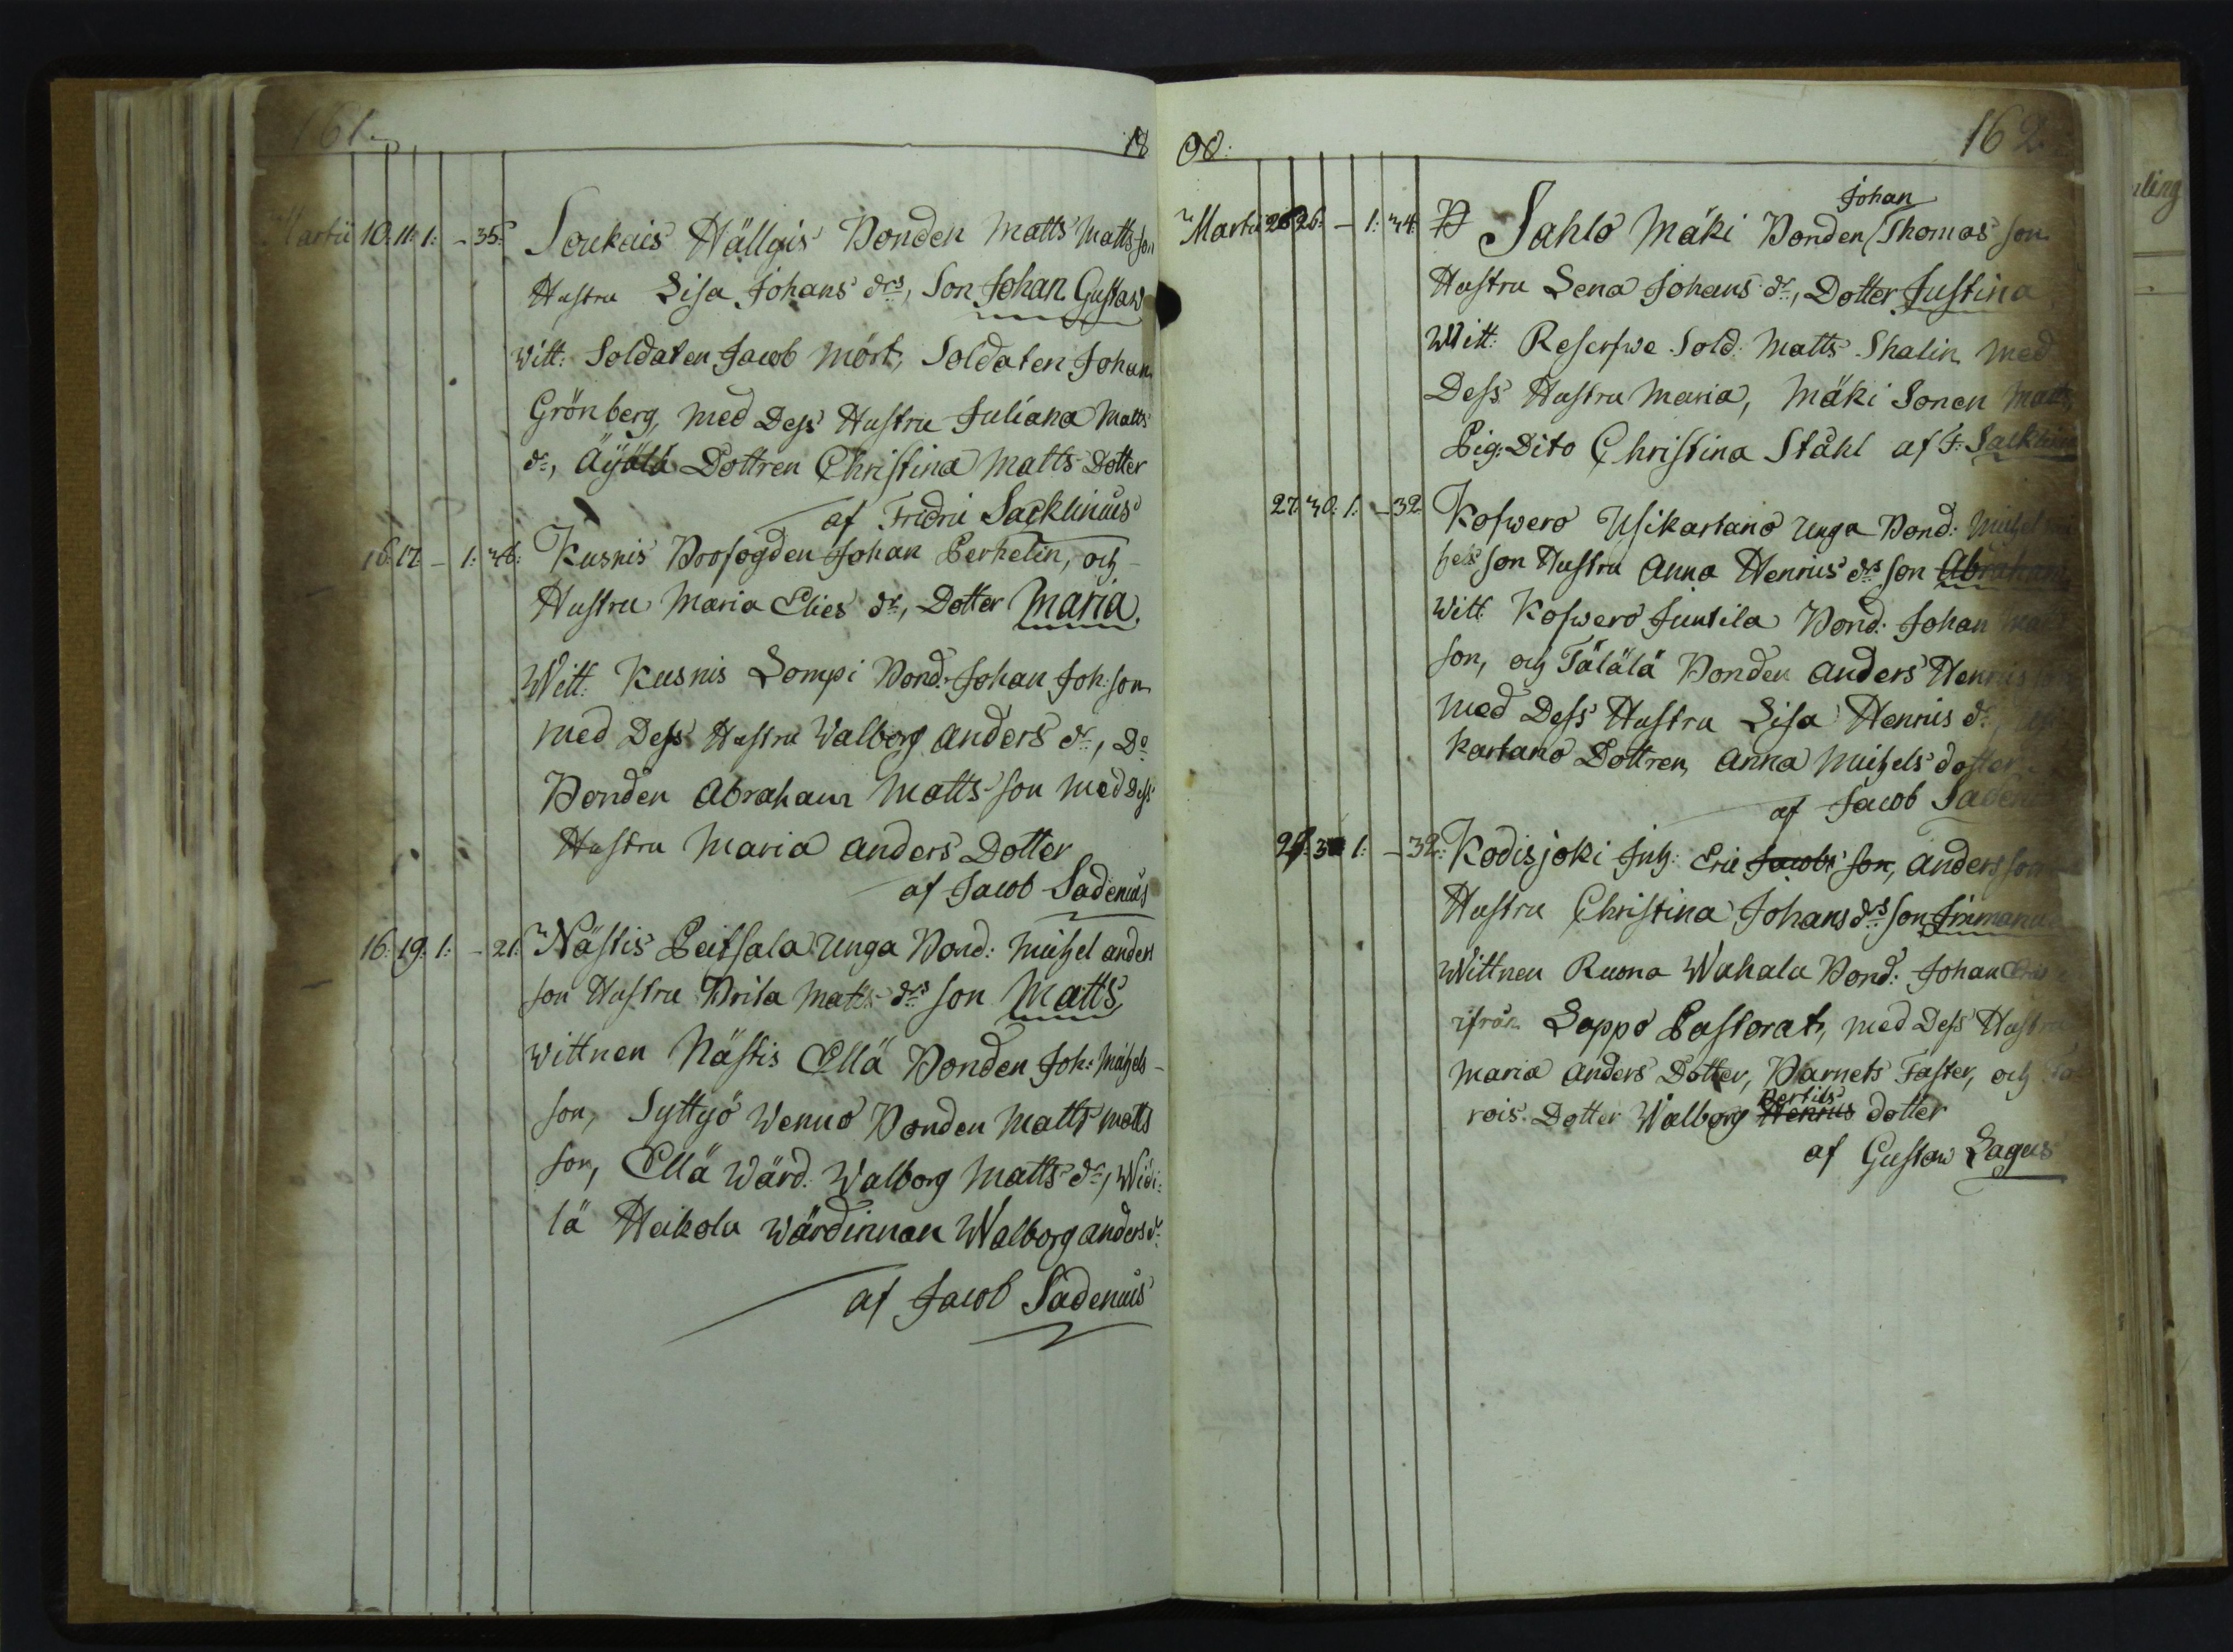 161.
18
Martii 10. 11. 1: - 35: Soukais Hällgis Bonden Matts Matts son
Hustru Lisa Johans drs, Son Johan Gustaw
Witt: Soldaten Jacob Mört, Soldaten Johan
Grönberg, med Dess Hustru Juliana Matts
dr, Äÿälä Dottren Christina Matts Dotter
af Fridric Sacklinius
16. 17. - 1: 46: Kusnis Brofogden Johan Perhelin, och
Hustru Maria Elies dr, Dotter Maria.
Witt: Kusnis Lompi Bond: Johan Joh: son
med Dess Hustru Walborg Anders dr, Do
Bonden Abraham Matts son med Dess
Hustru Maria Anders Dotter
af Jacob Sadenius
16: 19: 1: - 21: Nästis Peitsala Unga Bond: Michel Anders
son Hustru Brita Matts drs son Matts,
Wittnen Nästis Ellä Bonden Joh: Michels
son, Syttyö Wenno Bonden Matts Matts
son, Ellä Wärd. Walborg Matts dr, Widi:
lä Heikola Wärdinnan Walborg Anders dr
af Jacob Sadenius
08:
162
Martii 26 26: - 1: 44. B Sahlo Mäki Bonden Johan Thomas son
Hustru Lena Johans dr, Dotter Justina
Witt: Reserfwe Sold: Matts Shalin med
Dess Hustru Maria, Mäki Sonen Matts,
Pig: Dito Christina Ståhl af F: Sacklin
27. 30. 1. - 32 Kofwero Usikartano Unga Bond: Michel Mi
hels son Hustru Anna Henrics drs son Abraham
Witt. Kofwero Juntila Bond: Johan Matts
son, och Tälälä Bonden Anders Henrics
med Dess Hustru Lisa Henrics dr,
kartano Dottren, Anna Michels dotter
af Jacob Sadeni
29. 30 1: - 32: Kodisjoki Inh: Eric Jacobs son, Anders son
Hustru Christina Johans drs son Immanu
Wittnen Ruona Wahala Bond: Johan Erics
ifrån Lappo Pastorat, med Dess Hustru
Maria Anders Dotter, Barnets Faster, och
rois Dotter Walborg Henrics Bertils dotter
af Gustaw Lagus
ling